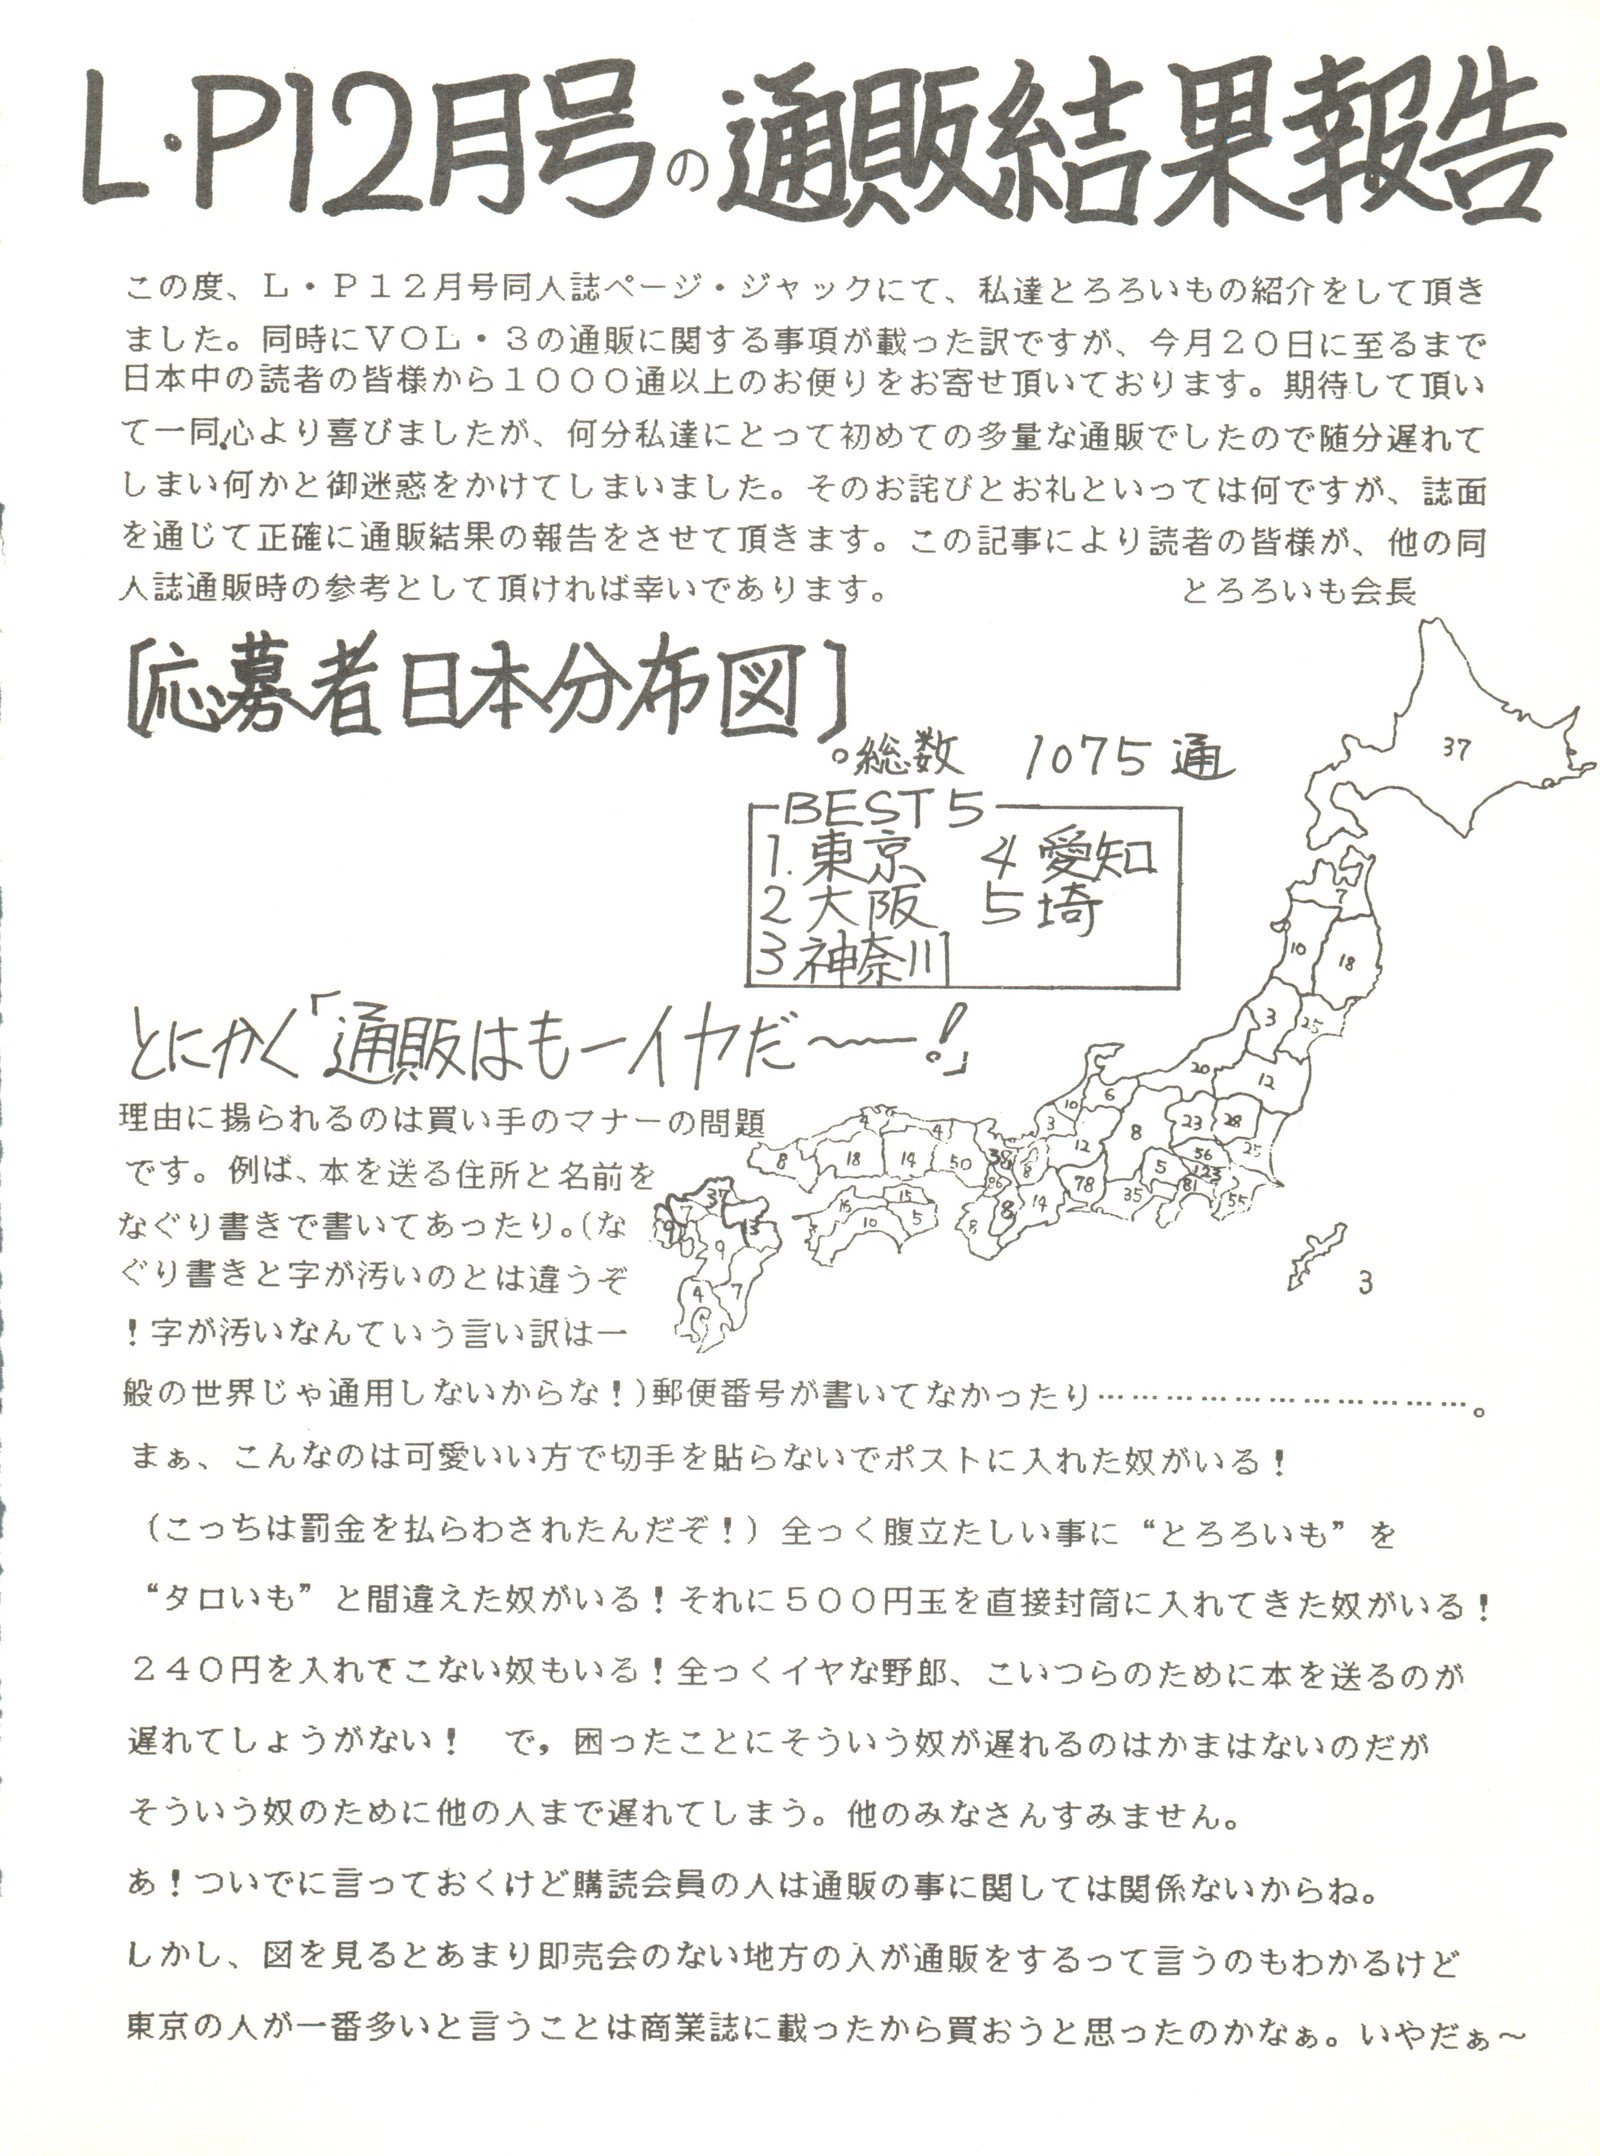 L・P12月号の通販結果報告
この度、L・P12月号同人誌ページ・ジャックにて、私達とろろいもの紹介をして頂き
ました。同時にVOL・3の通販に関する事項が載った訳ですが、今月20日に至るまで
日本中の読者の皆様から1000通以上のお便りをお寄せ頂いております。期待して頂い
て一同心より喜びましたが、何分私達にとって初めての多量な通販でしたので随分遅れて
しまい何かと御迷惑をかけてしまいました。そのお詫びとお礼といっては何ですが、誌面
を通じて正確に通販結果の報告をさせて頂きます。この記事により読者の皆様が、他の同
人誌通販時の参考として頂ければ幸いであります。 とろろいも会長
[応募者日本分布図]
。総数 1075通
BEST5
1.東京 4 愛知
2 大阪 5 埼
3 神奈川
37
7
10 18
3 25
20 12
10 6
3 12 8 23 28
4 4
8 18 14 50 38 8
56 25
5 123
86 78 35 81 55
8 8 14
16 15
10 5
37
7
9 10 13
9
4 7
3
とにかく「通販はもーイヤだ〜ー!」
理由に揚られるのは買い手のマナーの問題
です。例ば、本を送る住所と名前を
なぐり書きで書いてあったり。(な
ぐり書きと字が汚いのとは違うぞ
!字が汚いなんていう言い訳は一
般の世界じゃ通用しないからな!)郵便番号が書いてなかったり………………………………。
まぁ、こんなのは可愛いい方で切手を貼らないでポストに入れた奴がいる!
(こっちは罰金を払らわされたんだぞ!)全っく腹立たしい事に“とろろいも”を
“タロいも”と間違えた奴がいる!それに500円玉を直接封筒に入れてきた奴がいる!
240円を入れてこない奴もいる!全っくイヤな野郎、こいつらのために本を送るのが
遅れてしょうがない! で,困ったことにそういう奴が遅れるのはかまはないのだが
そういう奴のために他の人まで遅れてしまう。他のみなさんすみません。
あ!ついでに言っておくけど購読会員の人は通販の事に関しては関係ないからね。
しかし、図を見るとあまり即売会のない地方の人が通販をするって言うのもわかるけど
東京の人が一番多いと言うことは商業誌に載ったから買おうと思ったのかなぁ。いやだぁ〜